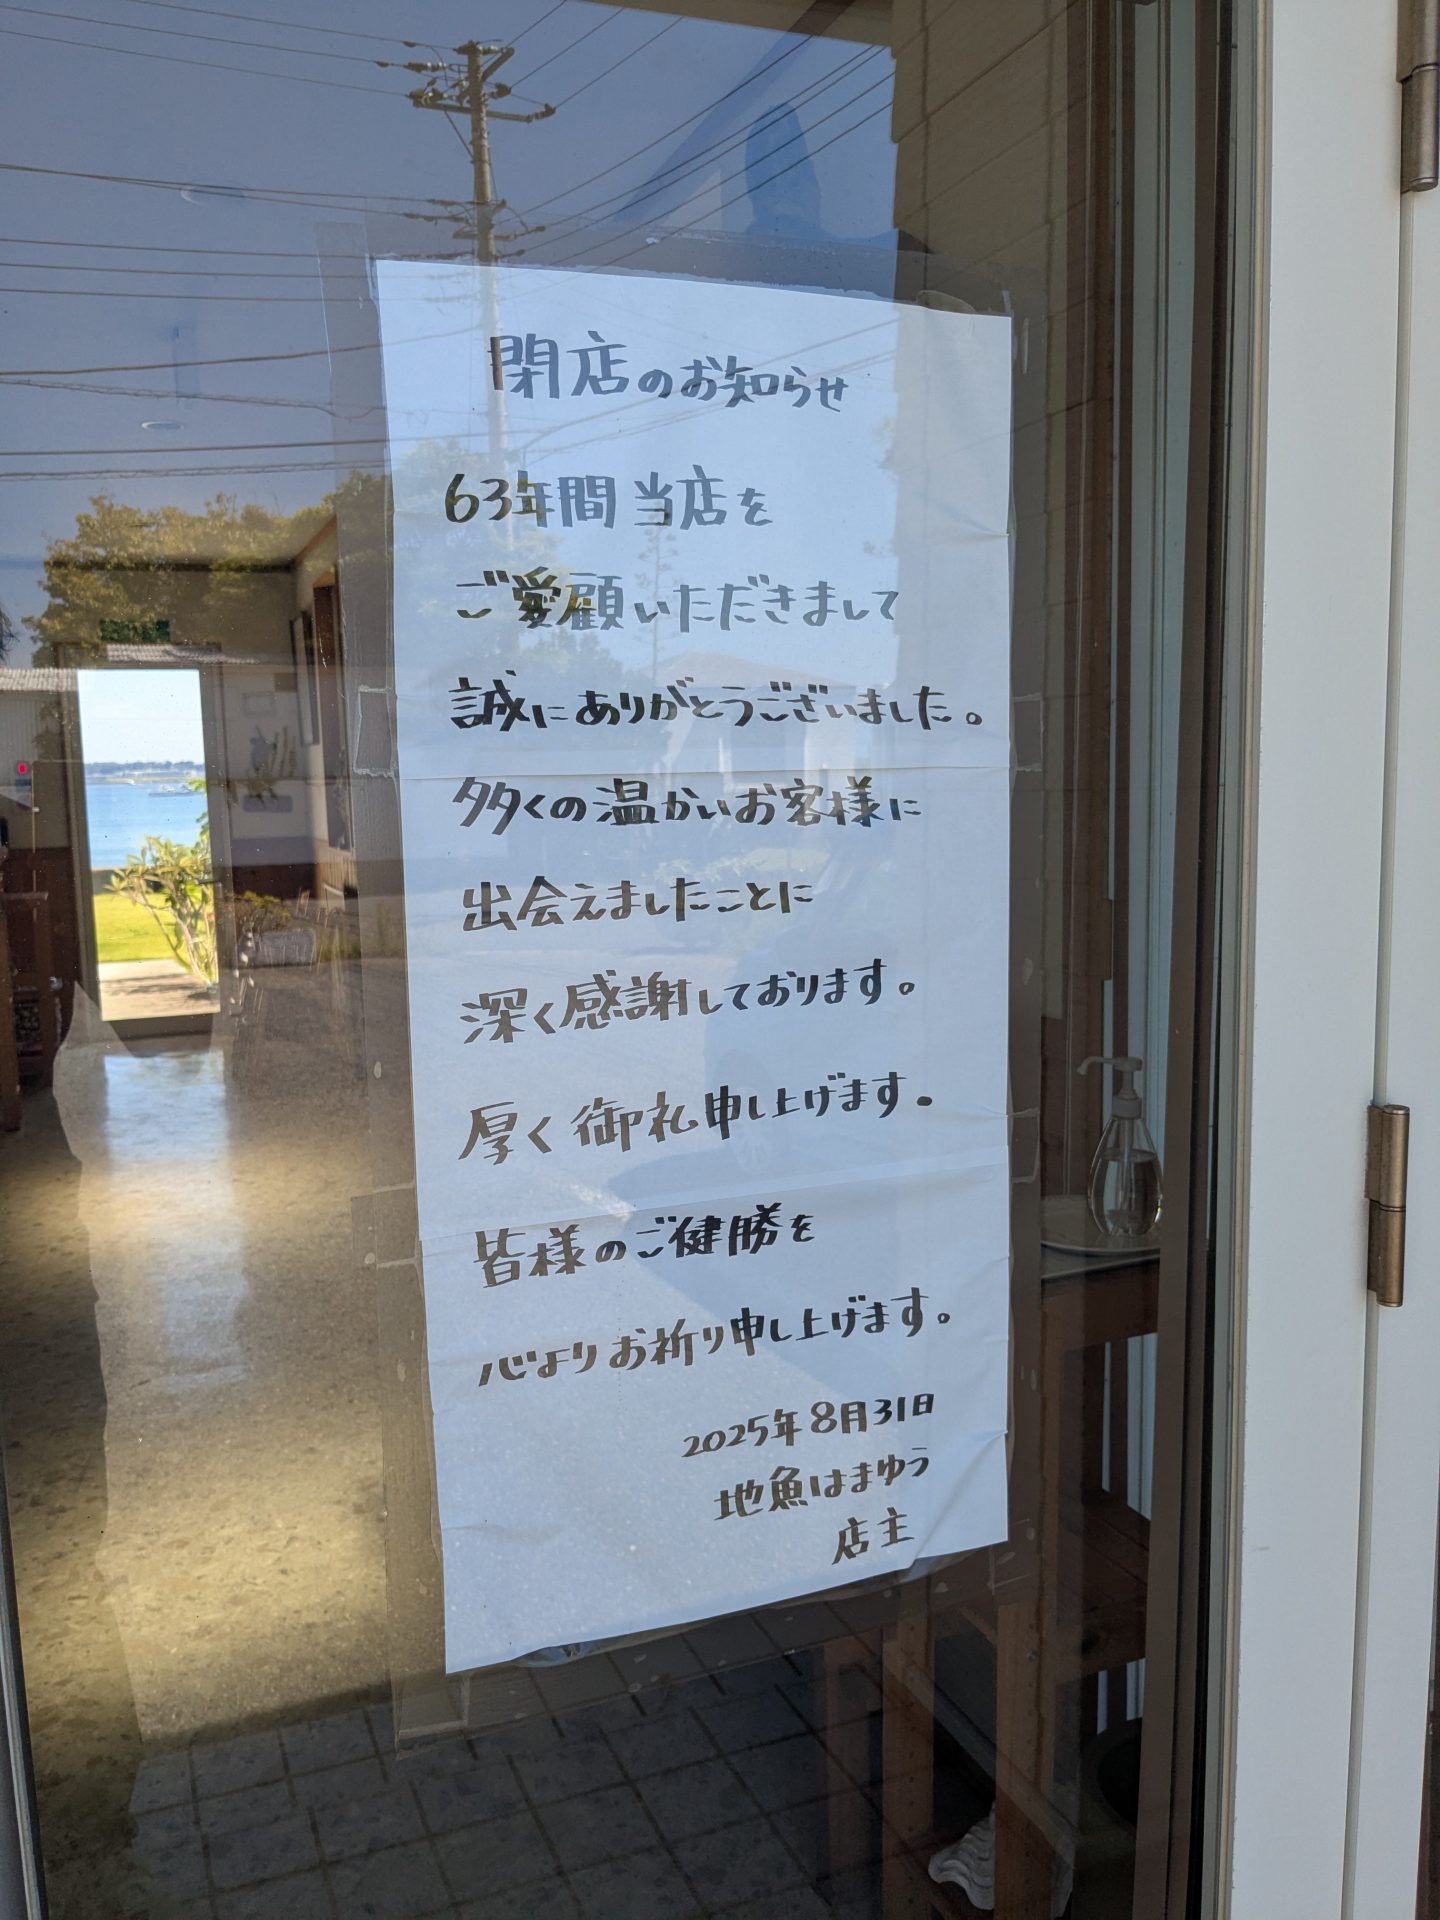 閉店のお知らせ
63年間当店を
ご愛顧いただきまして
誠にありがとうございました。
多くの温かいお客様に
出会えましたことに
深く感謝しております。
厚く御礼申し上げます。
皆様のご健勝を
心よりお祈り申し上げます。
2025年8月31日
地魚はまゆう
店主